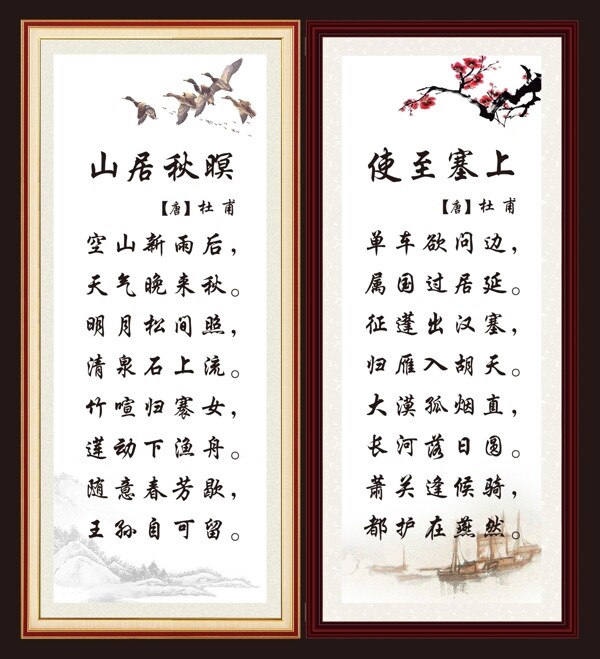 山居秋暝
【唐】杜甫
空山新雨后，
天气晚来秋。
明月松间照，
清泉石上流。
竹喧归褰女，
莲动下渔舟。
随意春芳歇，
王孙自可留。
使至塞上
【唐】杜甫
单车欲问边，
属国过居延。
征蓬出汉塞，
归雁入胡天。
大漠孤烟直，
长河落日圆。
萧关逢候骑，
都护在燕然。